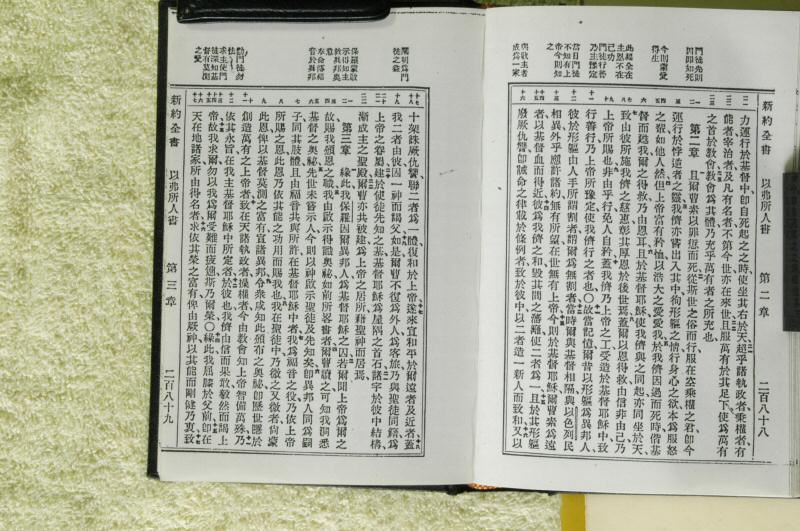 新約全書 以弗所人書 第二章 二百八十八
今則蒙上
得生
此福全在
主恩不在
己功
門徒行善
乃主預定
當日門徒
不知有上
帝今則知
之
成爲一家
力運行於基督中、卽自死起之、之時、使坐其右於天、超乎諸執政者、乘權者、有
能者、宰治者、及凡有名者、不第今世、亦在來世、且服萬有於其足下、使爲萬有
之首於敎會、敎會爲其體、乃充乎萬有者之所充也、
第二章 且爾曹素以罪愆而死、從斯世之俗而行、服在空乘權之君、卽今
運行於悖逆者之靈、我儕亦嘗出入其中、徇形軀之情、行身心之欲、本爲服怒
之輩、如他人然、但上帝富有矜恤、以浩大之愛愛我、於我儕因過而死時、偕基
督而甦、爾之得救、乃由恩耳、且於基督耶穌、使我儕與之同起、亦同坐於天、
致由彼所施我儕之慈惠、彰其厚恩於後世焉、蓋爾以恩得救、由信、非由己、乃
上帝所賜也、非由乎行、免人自矜、蓋我儕乃上帝之工、受造於基督耶穌中、致
行善行、乃上帝所豫定、使我儕行之者也、〇故當記憶爾昔以形軀爲異邦人、
彼於形軀由人手所謂割者、謂爾爲無割者、當時爾與基督相隔、與以色列民
相異、外乎應許諸約、無有所望、在世無有上帝、今則於基督耶穌、爾曹素爲遠
者、以基督血而得近、彼爲我儕之和、毀其間之藩籬、使二者爲一、且於其形軀
廢厥仇讐、卽誡命之律載於條例者、致於彼中、以二者造一新人而致和、又以
新約全書 以弗所人書 第三章 二百八十九
闡明爲門
徒之益
十架誅厥仇讐、聯二者爲一體、復和於上帝、遂來宣和平於爾遠者、及近者、蓋
我二者、由彼因一神而謁父、如是爾曹不復爲外人、爲客旅、乃與聖徒同籍、爲
上帝之眷屬、建於使徒先知之基、基督耶穌爲屋隅之首石、諸宇於彼中結構、
漸成主之聖殿、爾曹亦共被建、爲上帝之居所、藉聖神而居焉、
第三章 緣此我保羅因爾異邦人爲基督耶穌之囚、若爾聞上帝爲爾之
故、賜我顓恩之職、我由啟示得識奧祕、如前所畧書者、爾曹讀之、可知我洞悉
基督之奧祕、先世未嘗示人、今則以神啟示聖徒及先知矣、卽異邦人同爲嗣
子、同其肢體、且由福音共與所許、在基督耶穌中者、我爲福音之役、乃依上帝
所賜之恩、此恩乃依其能之功用而賜我也、我在聖徒中、乃微之又微者、尙蒙
此恩、俾以基督莫測之富有、宣諸異邦、令衆咸知此頒布之奧祕、卽歷世匿於
創造萬有之上帝者、致在天諸執政者、操權者、今由敎會知上帝智備萬殊、乃
依其永旨、在我主基督耶穌中所定者、於彼也、我儕由信而果敢毅然而謁上
帝、故我求爾勿以我爲爾受難而疲憊、斯乃爾榮、〇緣此我屈膝於父前、卽在
天在地諸家所由得名者、求依其榮之富有、俾由厥神、以其能而剛健乃衷、致